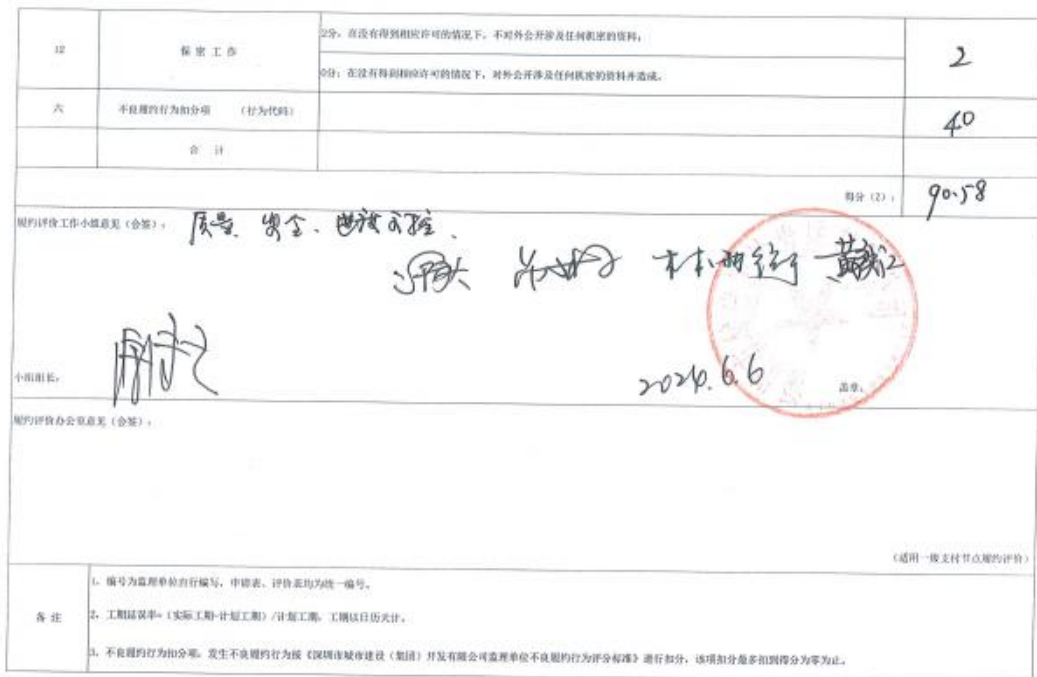 12 保密工作 2分：在没有得到相应许可的情况下，不对外公开涉及任何机密的资料； 2
0分：在没有得到相应许可的情况下，对外公开涉及任何机密的资料并造成。
六 不良履约行为扣分项 （行为代码） 40
合 计
得分（2）： 90.58
履约评价工作小组意见（会签）： 质量、安全、进度可控、
小组组长： 2024.6.6 盖章：
履约评价办公室意见（会签）：
（适用一般支付节点履约评价）
备注
1、编号为监理单位自行编写，申请表、评价表均为统一编号。
2、工期延误率=（实际工期-计划工期）/计划工期。工期以日历天计。
3、不良履约行为扣分项：发生不良履约行为按《深圳市城市建设（集团）开发有限公司监理单位不良履约行为评分标准》进行扣分，该项扣分最多扣到得分为零为止。